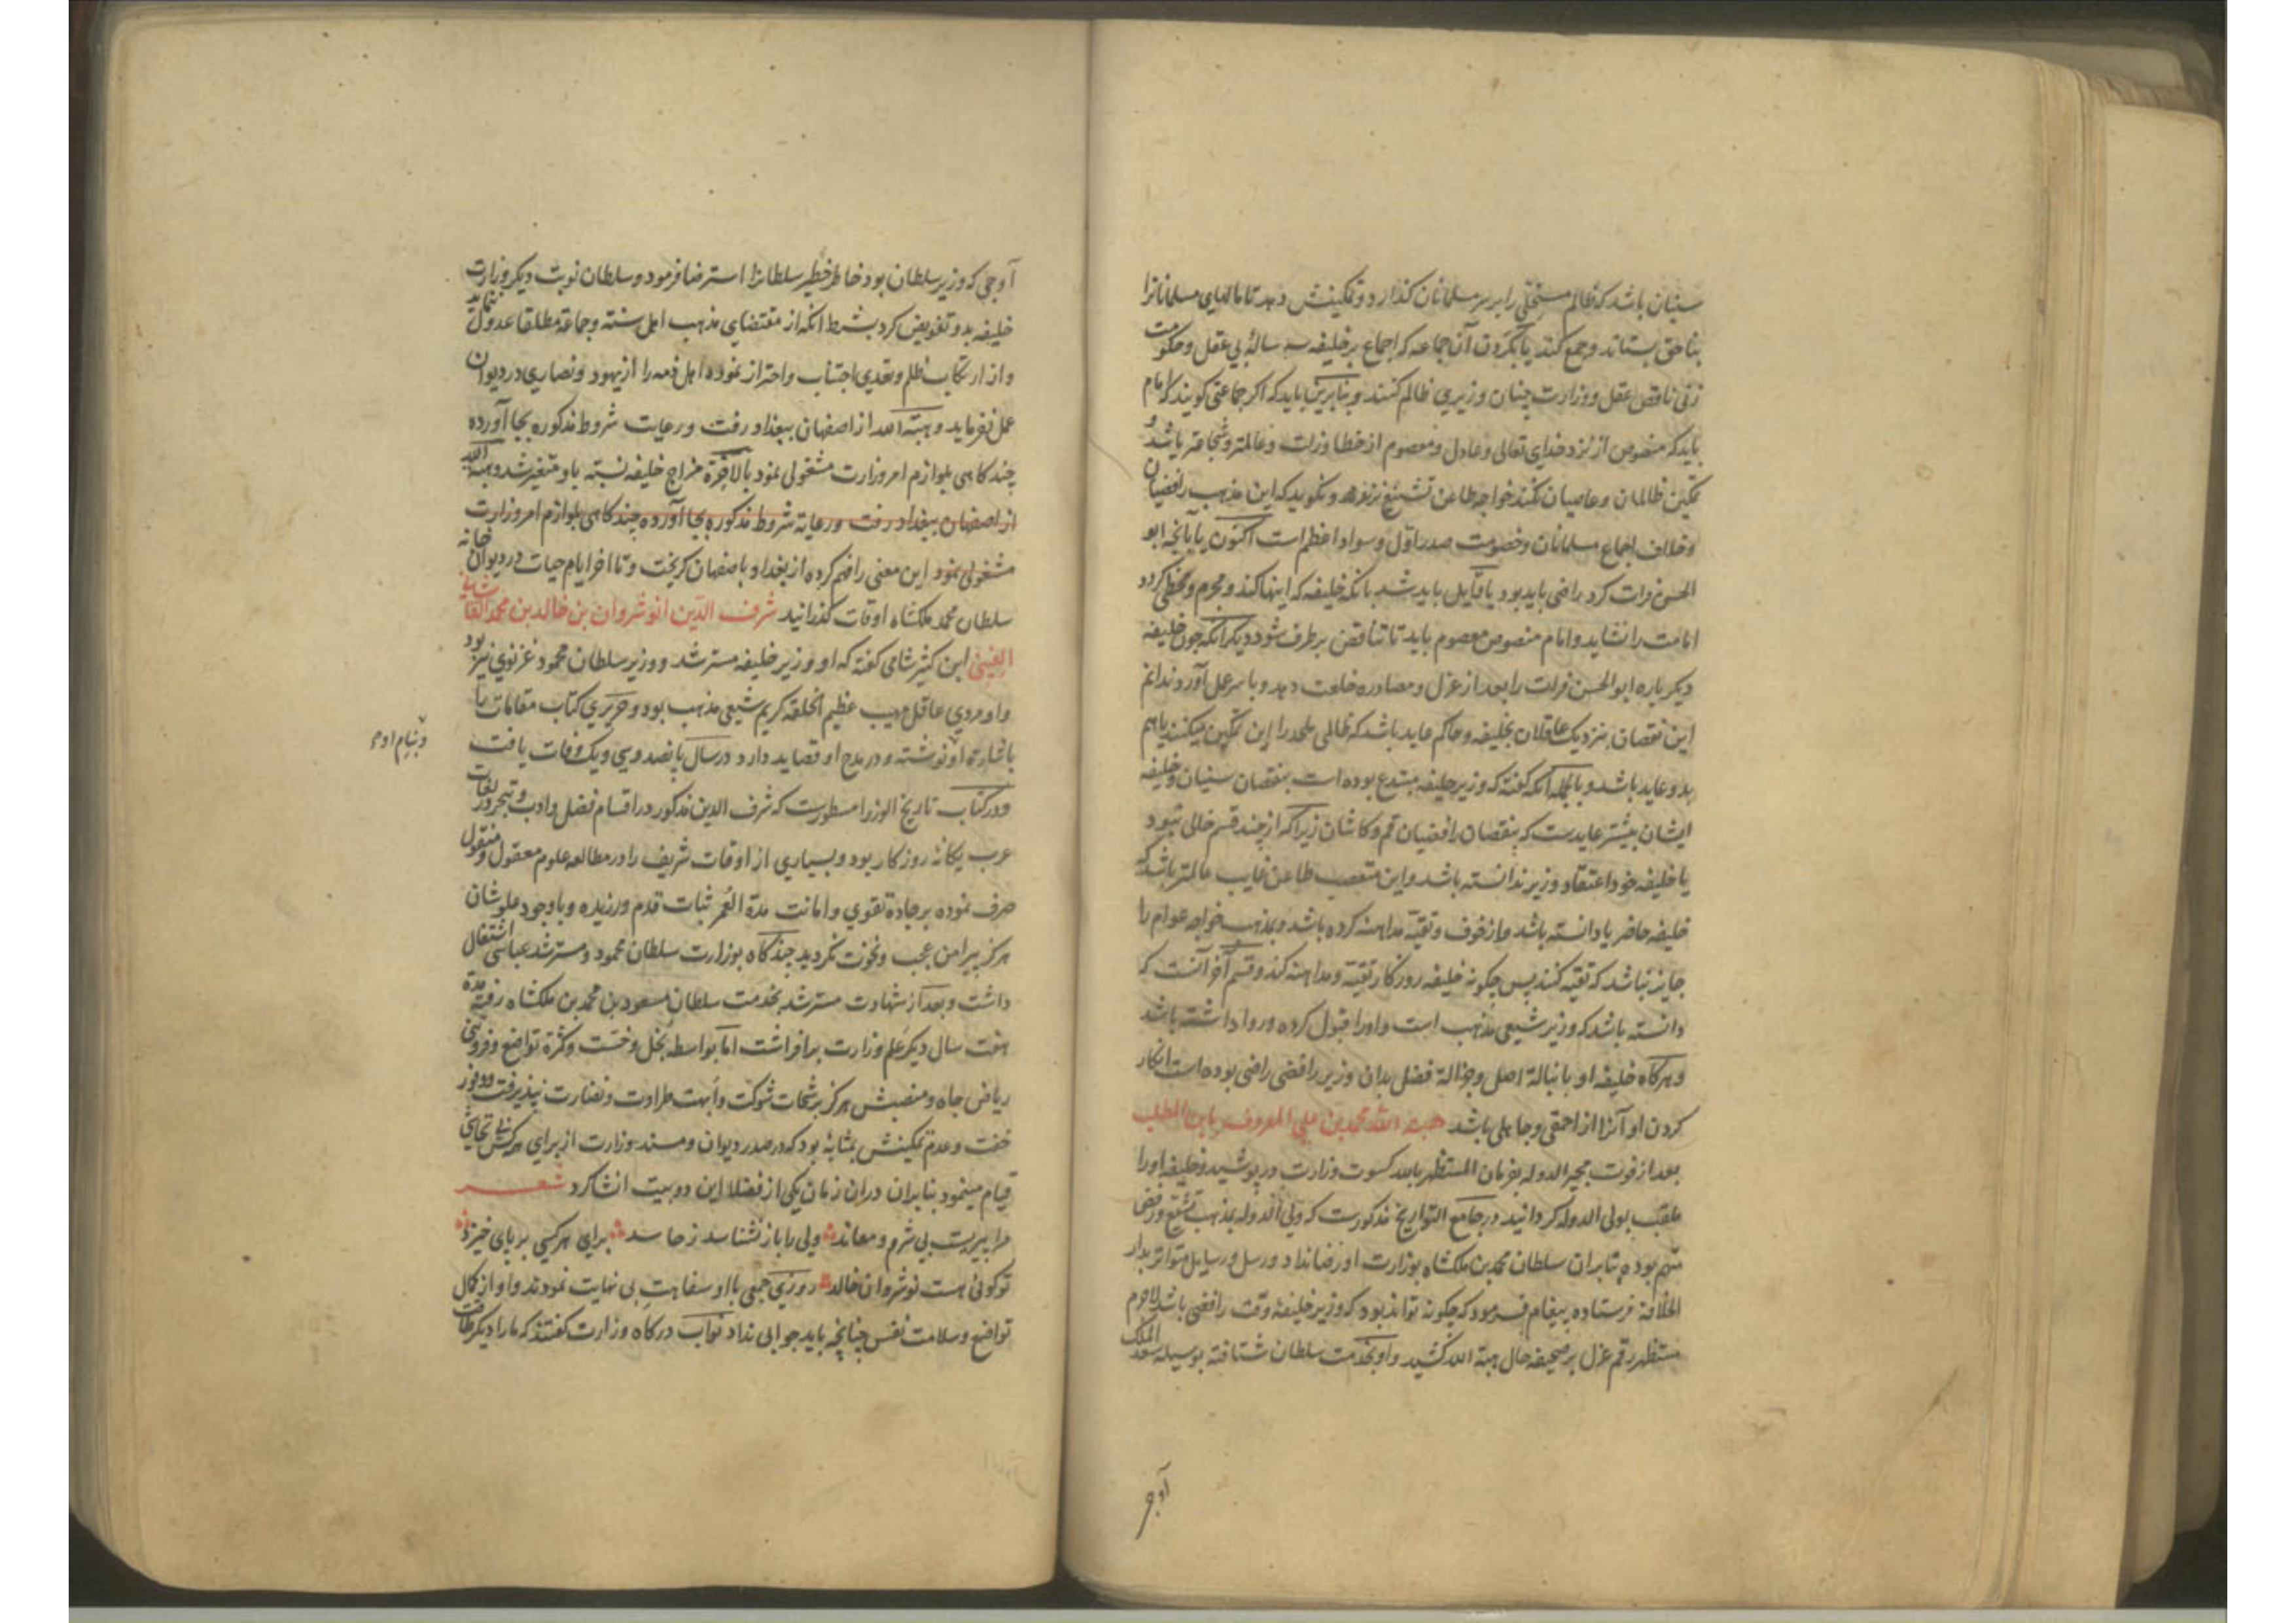 سنیان باشد که ظالم مستحقی را بر سر مسلمانان کذارد و تمکینش دهد تا مالهای مسلمانانرا
بناحق بستاند و جمع کند یا بکردن آن جماعه که اجماع بر خلیفه سه ساله بی عقل و حکومت
زنی ناقص عقل و وزارت چنان وزیری ظالم کنند و بنابرین باید که اکر جماعتی کویند که امام
باید که منصوص از نزد خدای تعالی و عادل و معصوم از خطا و زلت و عالمتر و شجاعتر باشد و
تمکین ظالمان و عاصیان نکند خواجه طاعن تشنیع نزند و نکوید که این مذهب رافضیان
و خلاف اجماع مسلمانان و خصومت صدر اول و سواد اعظم است اکنون یا بآنچه ابو
الحسن فرات کرد راضی باید بود یا قایل باید شد بانکه خلیفه که اینها کند و مجرم و مخطی کردد
امامت را نشاید و امام منصوص معصوم باید تا تناقض برطرف شود دیکر انکه چون خلیفه
دیکر باره ابو الحسن فرات را بعد از عزل و مصادره خلعت دهد و با سر عمل آورد ندانم
این نقصان بنزدیک عاقلان بخلیفه و حاکم عاید باشد که ظالمی ملحد را این تمکین میکنند یا هم
بدو عاید باشد و بالجمله آنکه کفته که وزیر خلیفه مبتدع بوده است بنقصان سنیان و خلیفه
ایشان بیشتر عایدست که بنقصان رافضیان قم و کاشان زیرا که از چند قسم خالی نبود
یا خلیفه خود اعتقاد وزیر ندانسته باشد و این متعصب طاعن غایب عالمتر باشد که
خلیفه حاضر یا دانسته باشد و از خوف و تقیه مداهنه کرده باشد و بمذهب خواجه عوام را
جایز نباشد که تقیه کنند پس چکونه خلیفه روزکار تقیة و مداهنه کند و قسم آخر آنست که
دانسته باشد که وزیر شیعی مذهب است و او را قبول کرده و روا داشته باشد
و هرکاه خلیفه او با نبالة اصل و جزالة فضل بدان وزیر رافضی راضی بوده است انکار
کردن او آنرا از احمقی و جاهلی باشد هبة الله محمد بن علی المعروف بابن المطلب
بعد از فوت مجیر الدوله بفرمان المستظهر بالله کسوت وزارت در پوشید و خلیفه او را
ملقب بولی الدوله کردانید در جامع التواریخ مذکورست که ولی الدوله بمذهب تشیع و رفض
متهم بوده بنابران سلطان محمد بن ملکشاه بوزارت او رضا نداد و رسل و رسایل متواتر بدار
الخلافة فرستاده پیغام فرمود که چکونه تواند بود که وزیر خلیفۀ وقت رافضی باشد لاجرم
مستظهر رقم عزل بر صحیفه حال هبة الله کشید و او بخدمت سلطان شتافته بوسیله سعد الملک
آوجی
آوجی که وزیر سلطان بود خاطر خطیر سلطانرا استرضا فرمود و سلطان نوبت دیکر وزارت
خلیفه بدو تفویض کرد بشرط انکه از مقتضای مذهب اهل سنته و جماعة مطلقا عدول ننماید
و از ارتکاب ظلم و تعدی اجتناب و احتراز نموده اهل ذمه را از یهود و نصاری در دیوان
عمل نفرماید و هبة الله از اصفهان ببغداد رفت و رعایت شروط مذکوره بجا آورده
چند کاهی بلوازم امر وزارت مشغولی نمود بالاخرة مزاج خلیفه نسبته باو متغیر شد و هبة الله
از اصفهان ببغداد رفت و رعایة شروط مذکوره بجا آورده چند کاهی بلوازم امر وزارت
مشغولی نمود این معنی را فهم کرده از بغداد باصفهان کریخت و تا اخر ایام حیات در دیوان خانه
سلطان محمد ملکشاه اوقات کذرانید شرف الدین انوشروان بن خالد بن محمد القاشانی
الفینی ابن کثیر شامی کفته که او وزیر خلیفه مسترشد و وزیر سلطان محمود غزنوی نیز بود
و او مردی عاقل مهیب عظیم الخلقه کریم شیعی مذهب بود و حریری کتاب مقامات را
باشارة او نوشته و در مدح او قصاید دارد در سال پانصد و سی و یک وفات یافت
و بنام او
و در کتاب تاریخ الوزرا مسطورست که شرف الدین مذکور در اقسام فضل و ادب و تبحر در لغات
عرب یکانۀ روزکار بود و بسیاری از اوقات شریف را در مطالعه علوم معقول و منقول
صرف نموده بر جادۀ تقوی و امانت مدة العمر ثبات قدم ورزیده و باوجود علو شان
هرکز پیرامن عجب و نخوت نکردید چند کاه بوزارت سلطان محمود و مسترشد عباسی اشتغال
داشت و بعد از شهادت مسترشد بخدمت سلطان مسعود بن محمد بن ملکشاه رفته مدة
هفت سال دیکر علم وزارت برافراشت اما بواسطه بخل و خست و کثرة تواضع و فروتنی
ریاض جاه و منصبش هرکز برشحات شوکت و ابهت طراوت و نضارت نپذیرفت و وفور
خفت و عدم تمکینش بمثابۀ بود که در صدر دیوان و مسند وزارت از برای هر کس بی تحاشی
قیام مینمود بنابران دران زمان یکی از فضلا این دو بیت انشا کرد شعر
مرا پیریست بی شرم و معاند ولی را باز نشناسد ز حاسد برای هر کسی بر پای خیزد
تو کوئی هست نوشروان خالد روزی جمعی با او سفاهت بی نهایت نمودند و او از کمال
تواضع و سلامت نفس چنانچه باید جوابی نداد نواب درکاه وزارت کفتند که ما را دیکر طاقت